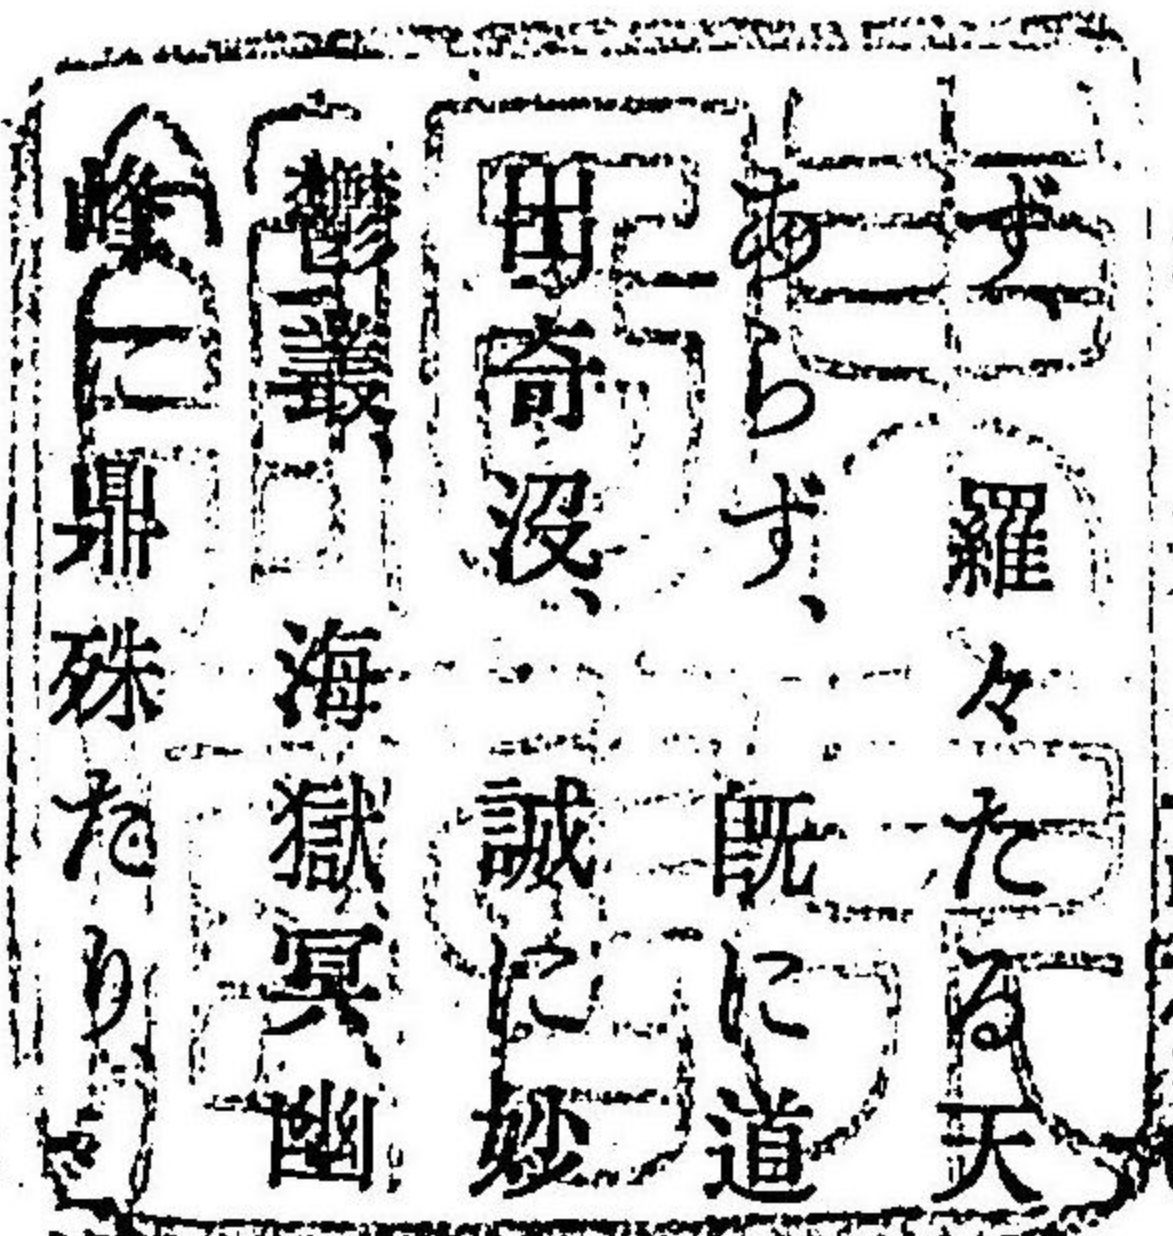 ず、羅々たる天
あらず、既に道
出奇没、誠に妙
鬱叢、海獄冥幽
峰に鼎殊たり